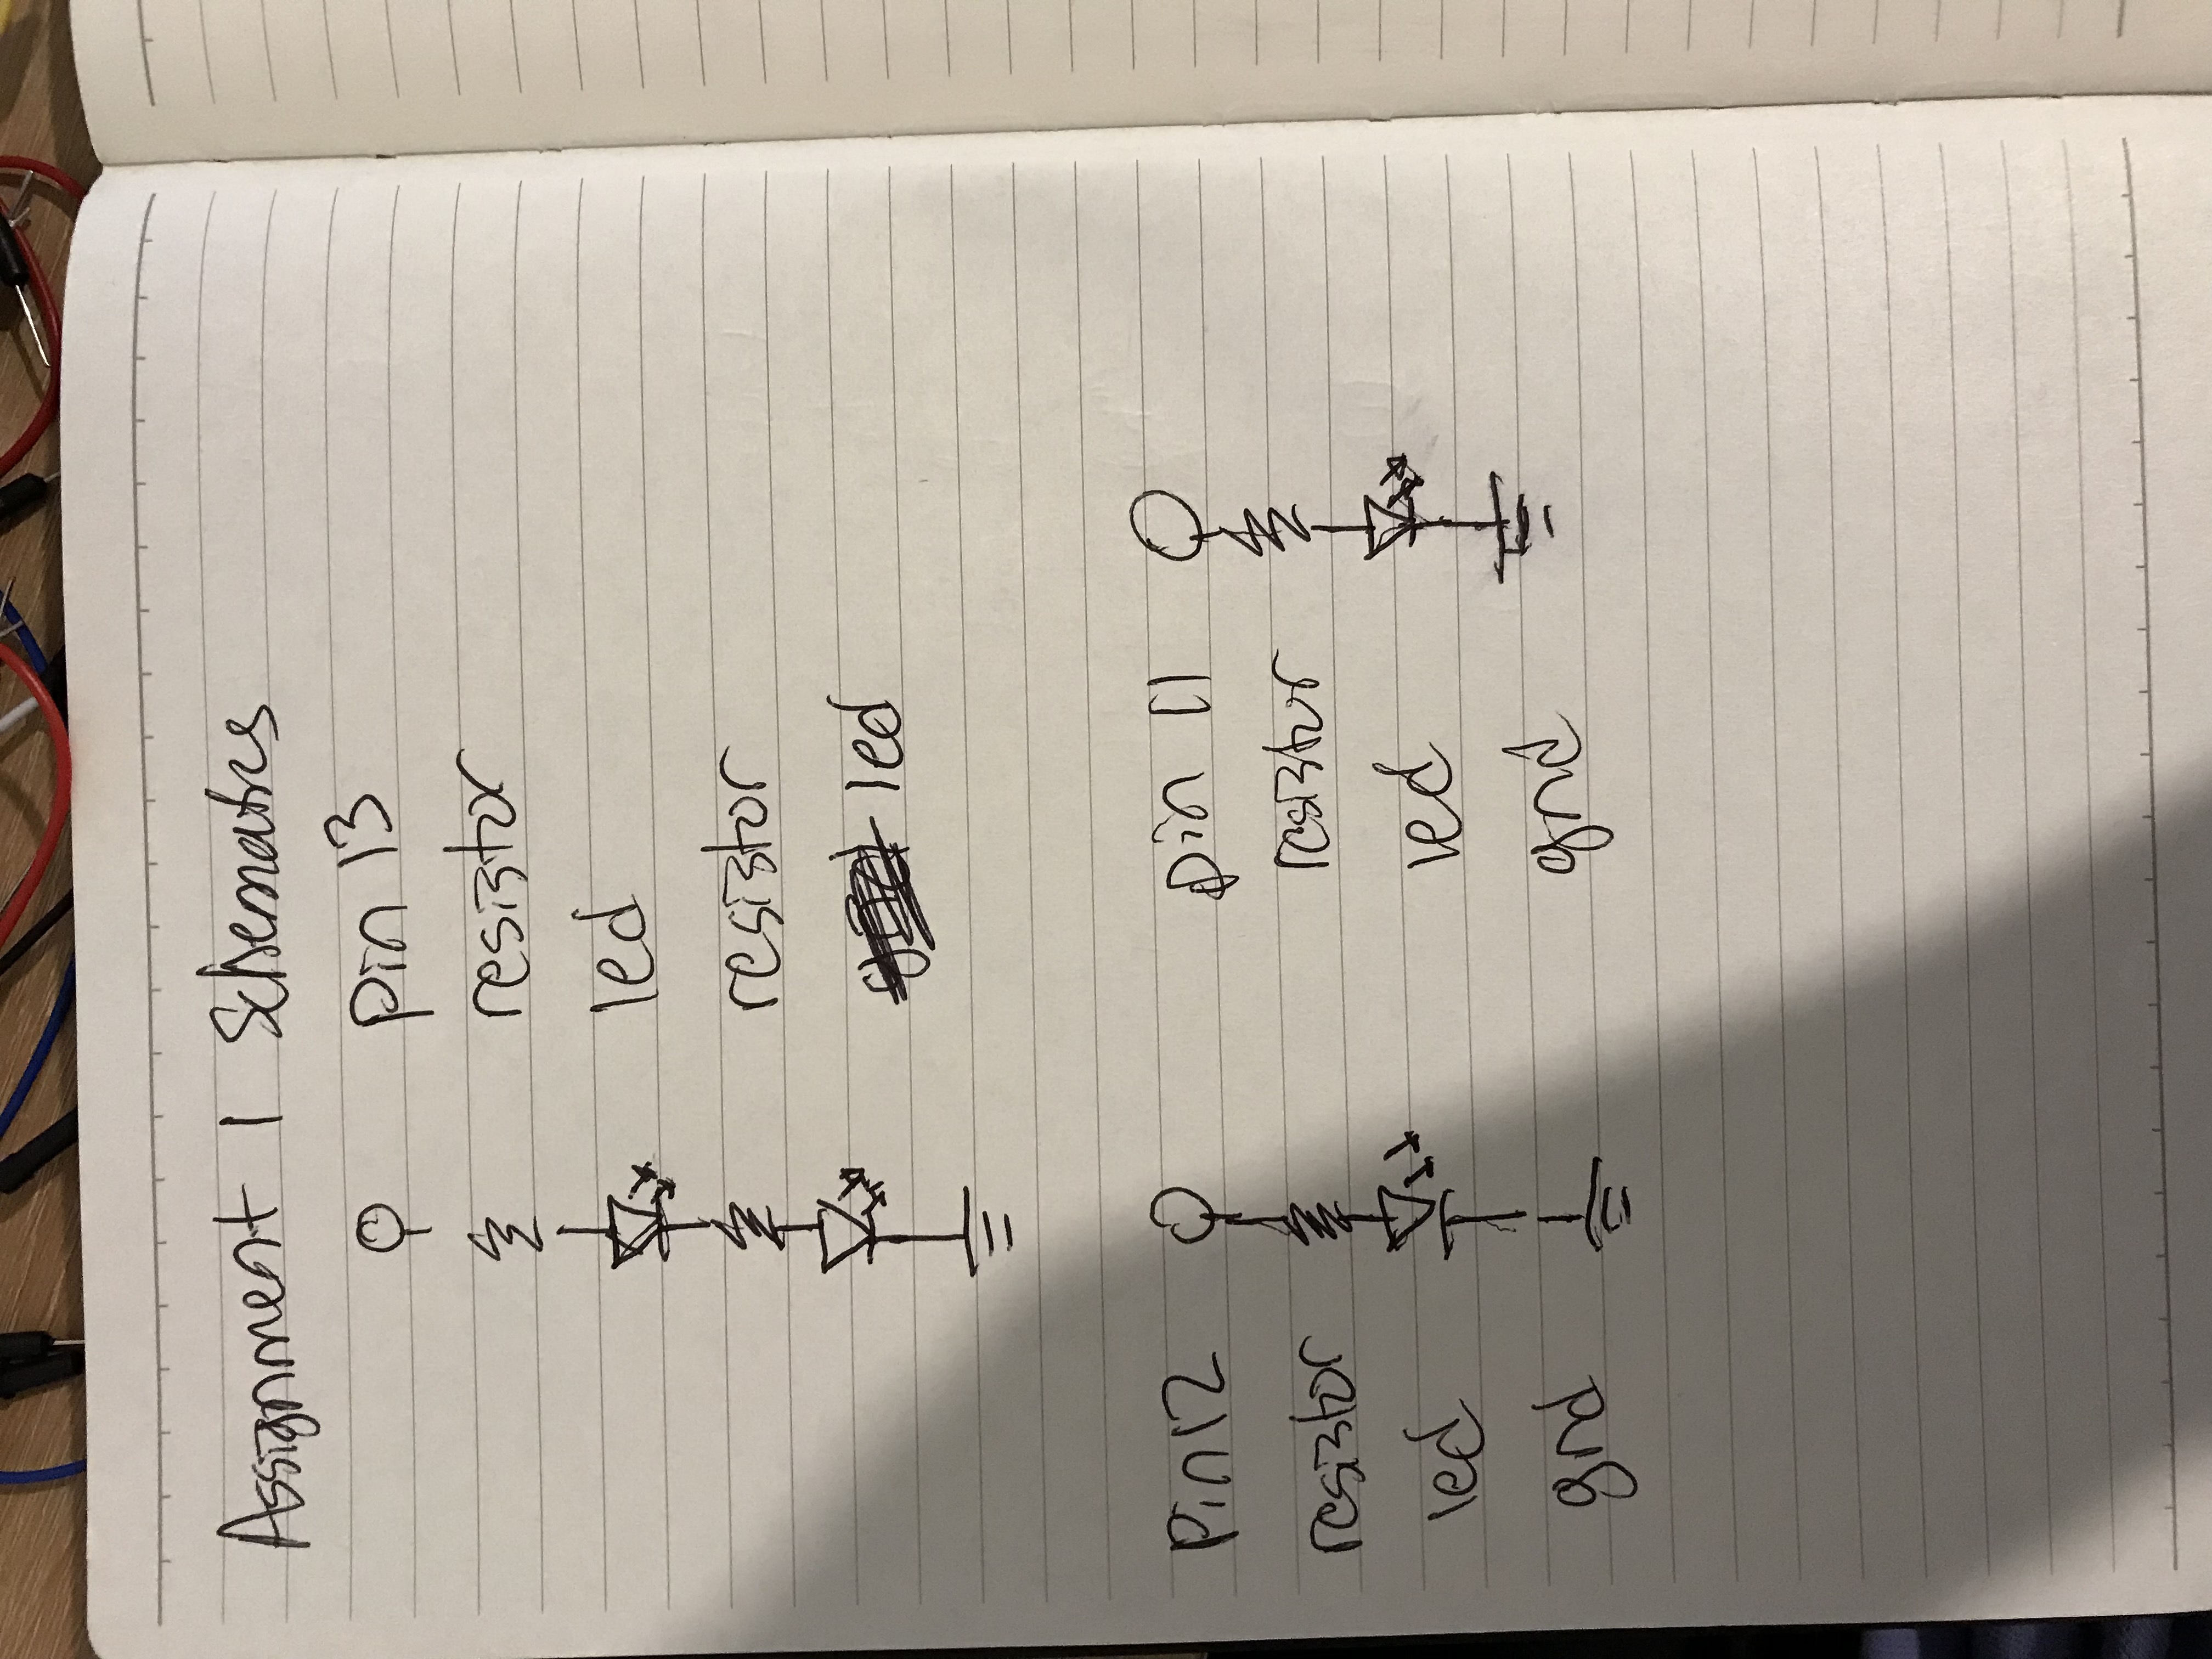 Assignment 1 Schematics
pin 13
resistor
led
resistor
led
pin12
resistor
led
gnd
pin 11
resistor
led
gnd